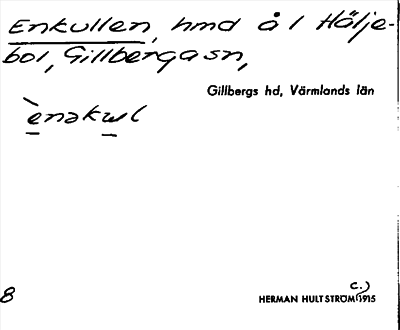 Enkullen, hmd å 1 Hälje-
bol, Gillberga sn,
Gillbergs hd, Värmlands län
ènəkwl
8
HERMAN HULTSTRÖM c.) 1915